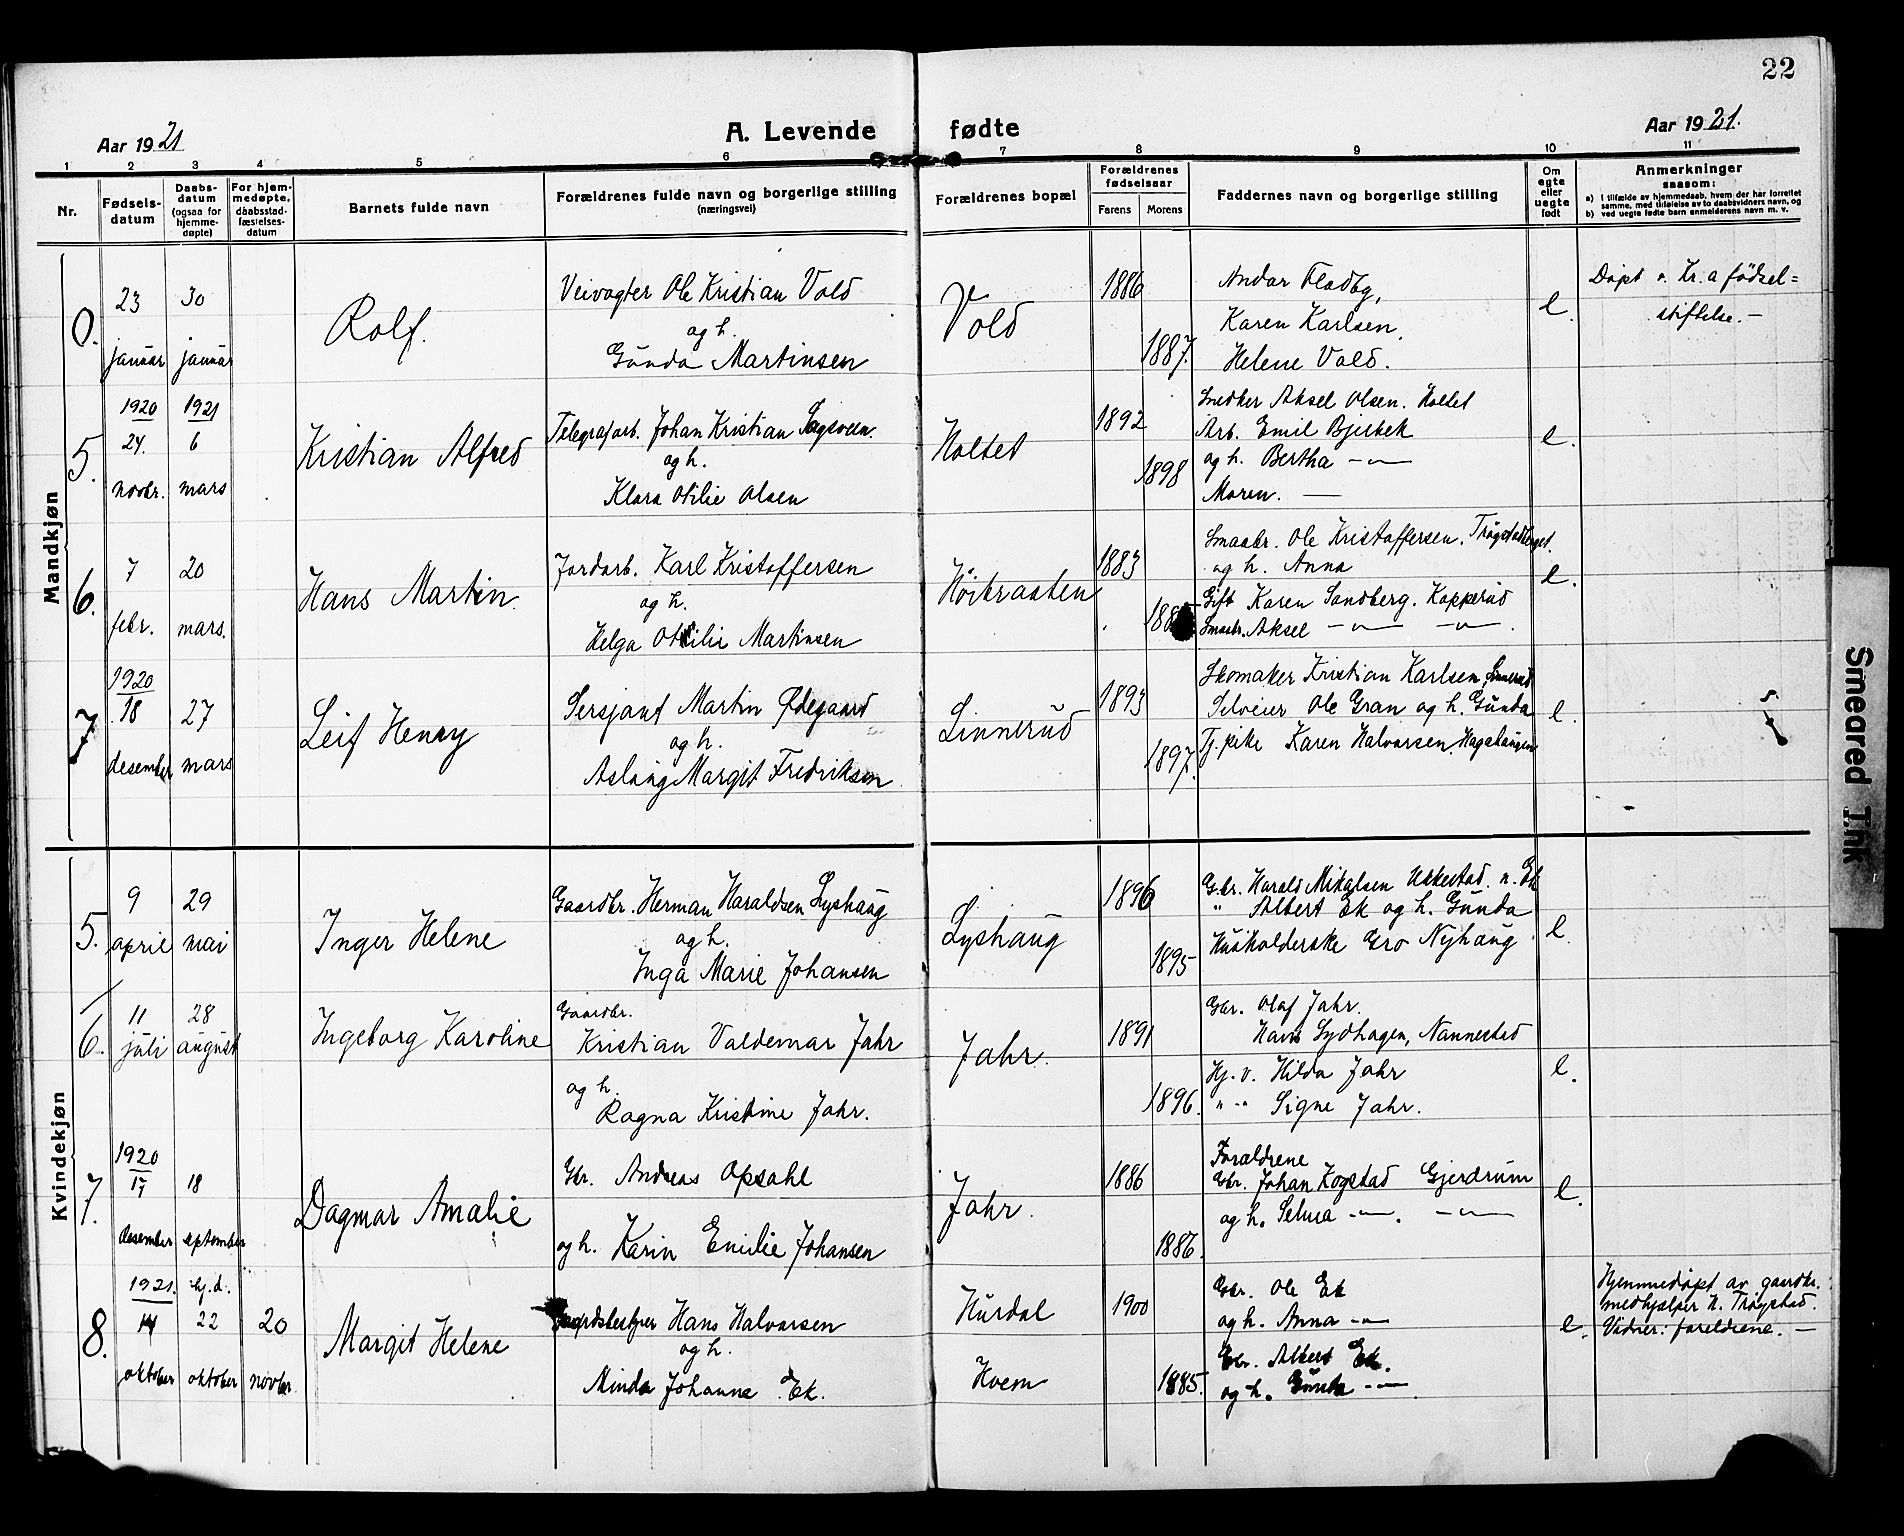 22
Aar 1921
A. Levende fødte
Aar 1921.
1 2 3 4 5 6 7 8 9 10 11
Nr.
Fødsels-
datum
Daabs-
datum
(ogsaa for
hjemme-
døpte)
For hjem-
medøpte,
daabsstad-
fæstelses-
datum
Barnets fulde navn
Forældrenes fulde navn og borgerlige stilling
(næringsvei)
Forældrenes bopæl
Forældrenes
fødselsaar
Farens Morens
Faddernes navn og borgerlige stilling
Om
egte
eller
uegte
født
Anmerkninger
saasom:
a) I tilfælde av hjemmedaab, hvem der har forrettet
samme, med tilføielse av to daabsvidners navn, og
b) ved uegte fødte barn anmelderens navn m. v.
Mandkjøn
0.
23
januar
30
januar
Rolf.
Veivogter Ole Kristian Vold
og h.
Gunda Martinsen
Vold
1886
1887.
Andar Fladby,
Karen Karlsen,
Helene Vold.
e.
Døpt v. Kr.a fødsel=
stiftelse. –
5.
1920
24.
novbr.
1921
6
mars
Kristian Alfred
Telegrafarb. Johan Kristian Sagsveen.
og h.
Klara Otilie Olsen
Holtet
1892
1898
Snedker Aksel Olsen. Holtet
Arb. Emil Bjerbek
og h. Bertha –"–
Moren. —
e.
6.
7
febr.
20
mars.
Hans Martin.
Jordarb. Karl Kristoffersen
og h.
Helga Otilie Martinsen
Høibraaten
1883
Smaabr. Ole Kristoffersen. Trøgstadberget.
og h. Anna
Gift Karen Sandberg. Kopperud
Smaabr. Aksel –"– –"–.
e.
7
1920
18
desember
27
mars
Leif Henry
Sersjant Martin Ødegaard
og h.
Aslaug Margit Fredriksen
Linnerud
1893
1897.
Skomaker Kristian Karlsen, Linnerud
Selveier Ole Gran og h. Gunda
Tj. pike Karen Halvorsen, Hagahaugen
e.
Kvindekjøn
5.
9
april
29
mai
Inger Helene
Gaardbr. Herman Haraldsen Lyshaug
og h.
Inga Marie Johansen
Lyshaug
1896
1895
Gbr. Harald Mikalsen Ukkestad. n. Ek
" Albert Ek og h. Gunda
Husholderske Gro Nyhaug
e.
6.
11
juli
28
august
Ingeborg Karoline
Gaardbr.
Kristian Valdemar Jahr
og h.
Ragna Kristine Jahr.
Jahr.
1891
1896.
Gbr. Olaf Jahr.
Hans Sydhagen, Nannestad
Hj. v. Hilda Jahr
" –" Signe Jahr.
e.
7.
1920
17
desember
18
september
Dagmar Amalie
Gbr. Andreas Opsahl
og h. Karin Emilie Johansen
Jahr.
1886
1886.
Forældrene
Gbr. Johan Kogstad Gjerdrum
og h. Selma –"–. –"–
e.
8.
1921.
14
oktober
hj.d.
22
oktober
20
novbr.
Margit Helene
Gaardsbestyrer Hans Halvorsen
og h.
Minda Johanne Ek.
Hurdal
Hvem
1900
1885.
Gbr. Ole Ek
og h. Anna –"–
Gbr. Albert Ek.
og h. Gunda –"–
e.
Hjemmedøpt av gaardbr.
medhjælper H. Trøgstad.
Vidner: foreldrene. –
Smeared Ink